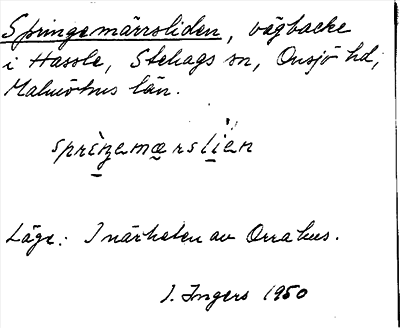 Springemärrsliden, vägbacke
i Hassle, Stehags sn, Onsjö hd,
Malmöhus län.
sprìŋemærslìen
Läge: I närheten av Orrahus.
I. Ingers 1950